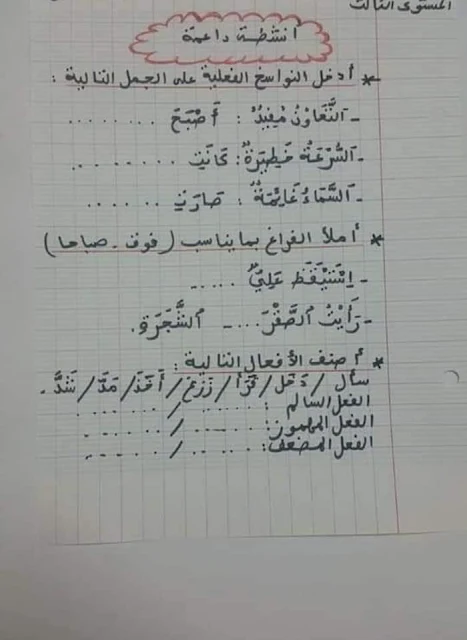 المستوى الثالث
أنشطة داعمة
* أدخل النواسخ الفعلية على الجمل التالية :
- التَّعَاوُنُ مُفِيدٌ : أَصْبَحَ ........
- السُّرْعَةُ خَطِيرَةٌ : كَانَتِ ........
- السَّمَاءُ غَائِمَةٌ : صَارَتِ ......
* أملأ الفراغ بما يناسب ( فوق - صباحا )
- اِسْتَيْقَظَ عَلِيٌّ .....
- رَأَيْتُ الصَّقْرَ ... الشَّجَرَةِ.
* أصنف الأفعال التالية :
سأل / دَخَلَ / قَرَأَ / زَرَعَ / أَخَذَ / مَدَّ / شَدَّ .
الفعل السالم : ....... / .......
الفعل المهموز : ....... / .......
الفعل المضعف : ....... / .......